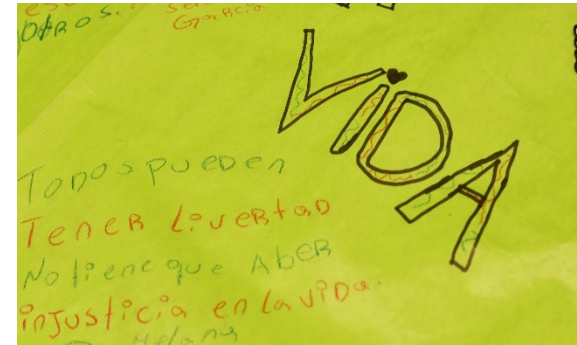 OtROS.
GARCIA
ViDA
TODOS pueDen
TeneR LiveRtaD
No tiene que AbeR
injusticia en la viDa.